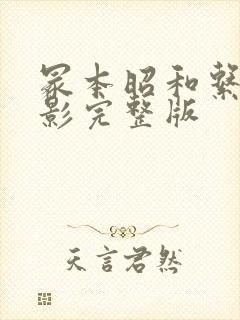 冢本昭和繫
影完整版
天言君然